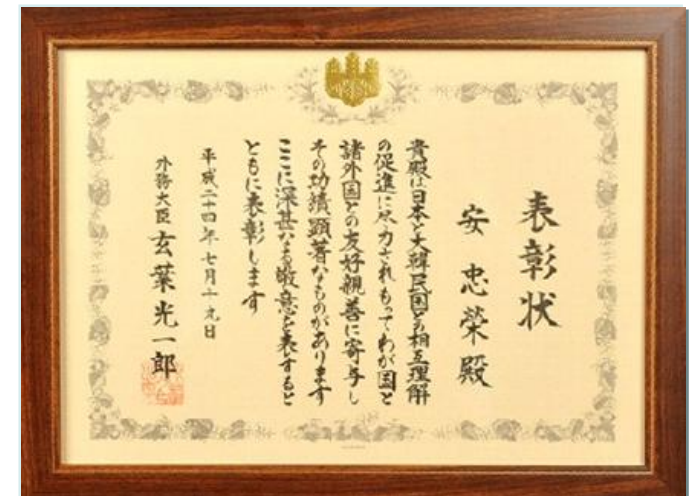 表彰状
安忠榮殿
貴殿は日本と大韓民国との相互理解
の促進に尽力されもってわが国と
諸外国との友好親善に寄与し
その功績顕著なものがあります
ここに深甚なる敬意を表すると
ともに表彰します
平成二十四年七月十九日
外務大臣 玄葉光一郎